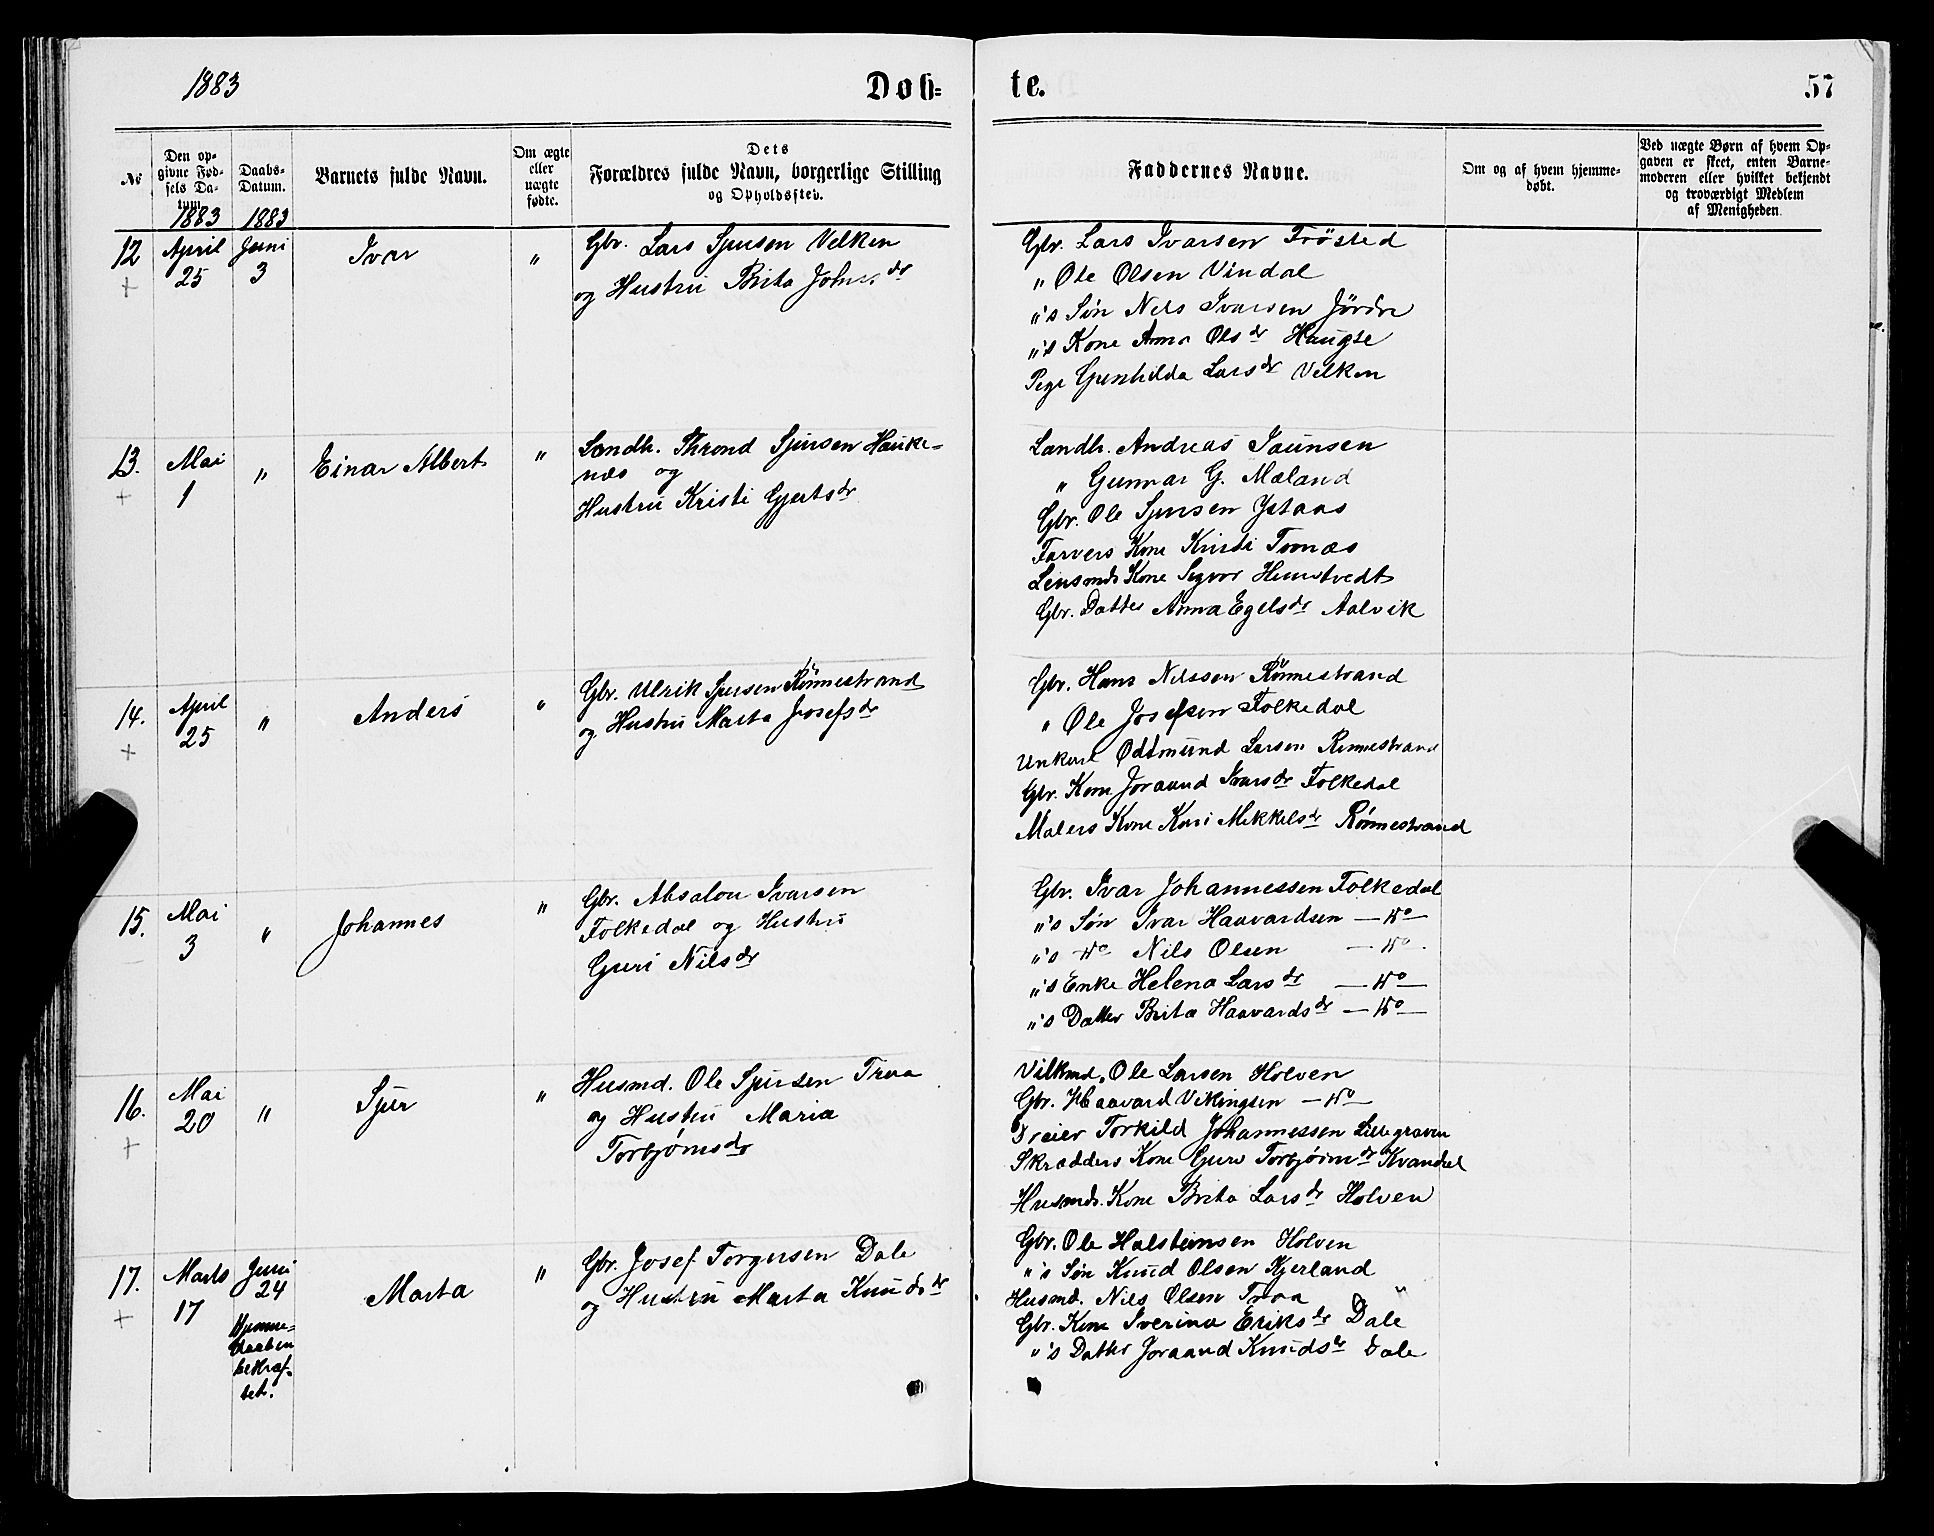 1883
Døb=
te.
57
№
Den op-
givne Fød-
sels Da-
tum.
1883
Daabs-
Datum.
1883
Barnets fulde Navn.
Om ægte
eller
uægte
fødte.
Dets
Forældres fulde Navn, borgerlige Stilling
og Opholdssted.
Faddernes Navne.
Om og af hvem hjemme-
døbt.
Ved uægte Børn af hvem Op-
gaven er skeet, enten Barne-
moderen eller hvilket bekjendt
og troværdigt Medlem
af Menigheden.
12
April
25
Juni
3
Ivar
"
Gbr. Lars Sjursen Velken
og Hustru Brita Johns dr
Gbr. Lars Ivarsen Trøsted
" Ole Olsen Vindal
"'s Søn Nils Ivarsen Jördre
"'s Kone Anna Ols dr Haugse
Pige Gunhilda Lars dr Velken
13.
Mai
1
"
Einar Albert
"
Landh. Thrond Sjursen Hauke-
næs og
Hustru Kristi Gjerts dr
Landh. Andreas
" Gunnar G. Mæland
Gbr. Ole Sjursen Ystaas
Farvers Kone Kristi Tornæs
Lensmds Kone Sygvor
Gbr. Datter Anna Egels dr Aalvik
14.
April
25
"
Anders
"
Gbr. Ulrik Sjursen Rönnestrand
og Hustru Marta Josefs dr
Gbr. Hans Nilssen Rönnestrand
" Ole Josefsen Folkedal
Unkarl Odtmund Larsen Rønnestrand
Gbr. Kone Joraand Ivars dr Folkedal
Malers Kone Kari Mikkels dr Rønnestrand
15.
Mai
3
"
Johannes
"
Gbr. Absalon Ivarsen
Folkedal og Hustru
Guri Nils dr
Gbr. Ivar Johannessen Folkedal
"'s Søn Ivar Haavardsen — do —
"'s do Nils Olsen — do —
"'s Enke Helena Lars dr — do —
"'s Datter Brita Haavards dr — do —
16.
Mai
20
"
Sjur
"
Husmd. Ole Sjursen Traa
og Hustru Maria
Torbjørns dr
Vilkmd. Ole Larsen Holven
Gbr. Haavard Vikingsen — do —
Dreier Torkild Johannessen Lillegraven
Skrædders Kone Guro Torbjørns dr Kvandal
Husmds. Kone Brita Lars dr Holven
17.
Marts
17
Juni
24
Hjemme-
daaben
bekræf-
tet.
Marta
"
Gbr. Josef Torgersen Dale
og Hustru Marta Knuds dr
Gbr. Ole Halsteinsen Holven
"'s Søn Knud Olsen Kjerland
Husmd. Nils Olsen Traa
Gbr. Kone Sverina Eriks dr Dale
"'s Datter Joraand Knuds dr Dale